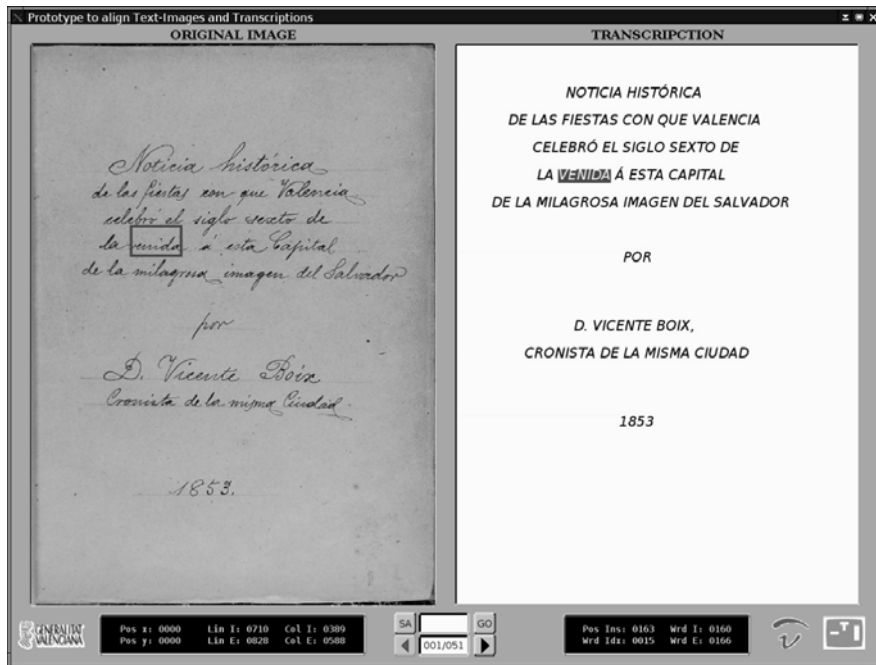 Prototype to align Text-Images and Transcriptions
ORIGINAL IMAGE
Noticia histórica
de las fiestas con que Valencia
celebró el siglo sexto de
la venida á esta Capital
de la milagrosa imagen del Salvador
por
D. Vicente Boix
Cronista de la misma Ciudad.
1853.
TRANSCRIPCTION
NOTICIA HISTÓRICA
DE LAS FIESTAS CON QUE VALENCIA
CELEBRÓ EL SIGLO SEXTO DE
LA VENIDA Á ESTA CAPITAL
DE LA MILAGROSA IMAGEN DEL SALVADOR
POR
D. VICENTE BOIX,
CRONISTA DE LA MISMA CIUDAD
1853
GENERALITAT
VALENCIANA
Pos x: 0000 Lin I: 0710 Col I: 0389
Pos y: 0000 Lin E: 0828 Col E: 0588
SA GO
001/051
Pos Ins: 0163 Wrd I: 0160
Wrd Idx: 0015 Wrd E: 0166